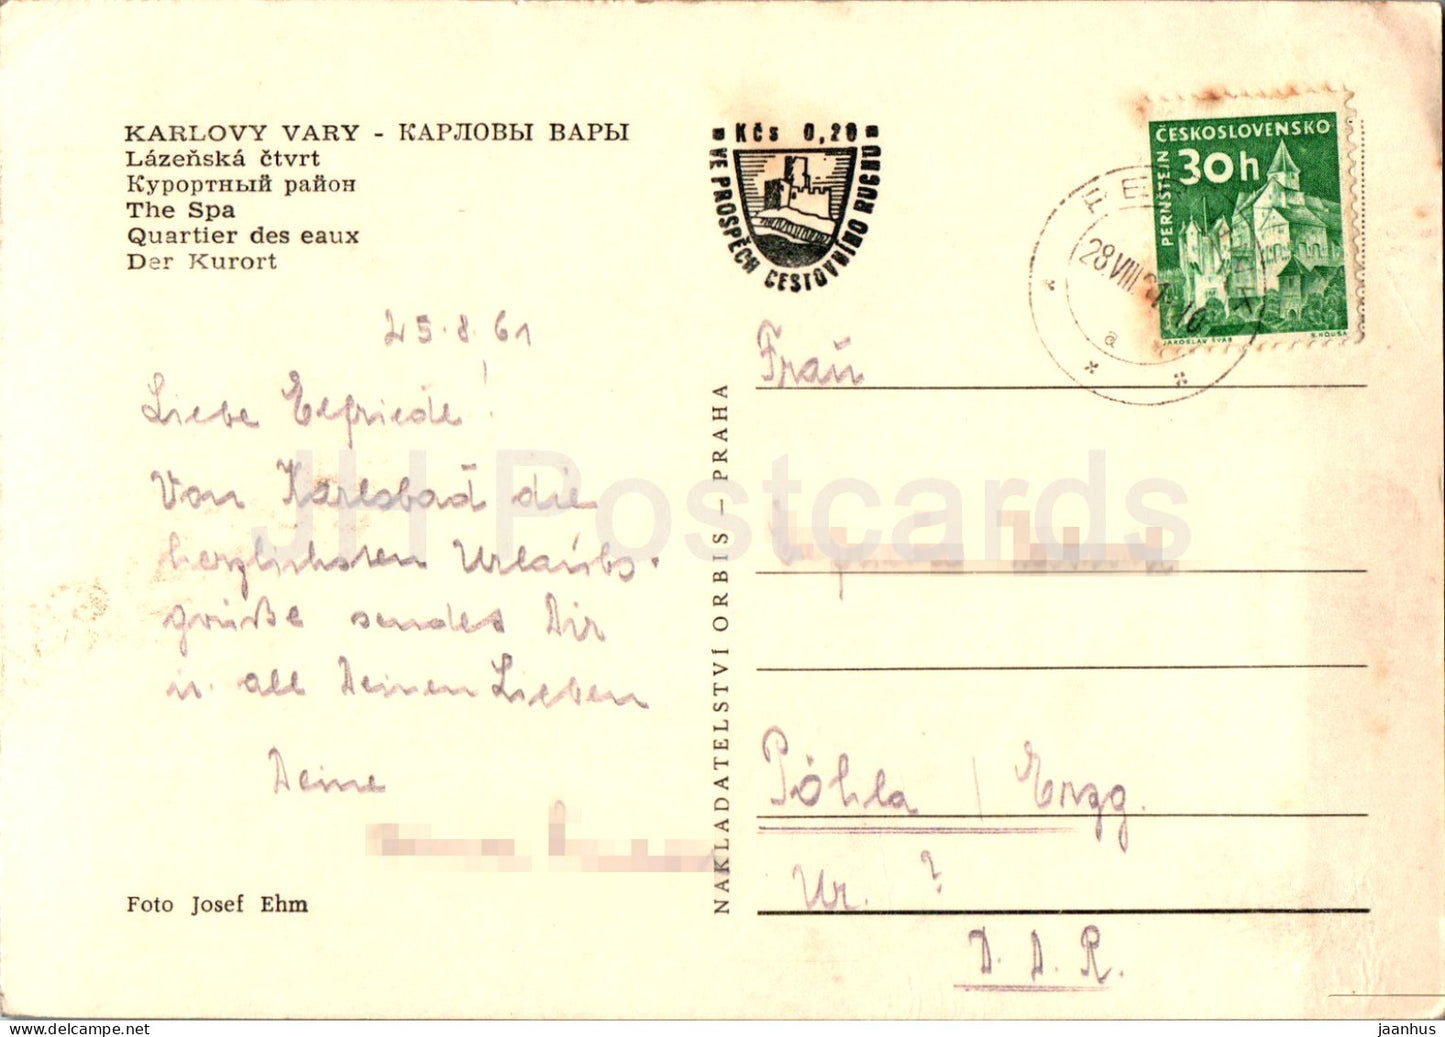 KARLOVY VARY - КАРЛОВЫ ВАРЫ
Lázeňská čtvrt
Курортный район
The Spa
Quartier des eaux
Der Kurort
25.8.61
Liebe Elfriede!
Von Karlsbad die
herzlichsten Urlaubs-
grüße sendet Dir
u. all Deinen Lieben
Deine
Foto Josef Ehm
NAKLADATELSTVÍ ORBIS — PRAHA
Kčs 0,20
VE PROSPĚCH CESTOVNÍHO RUCHU
ČESKOSLOVENSKO
30h
PERNŠTEJN
JAROSLAV ŠVÁB
28.VIII.
a
Frau
Pöhla / Erzg.
Nr. ?
D.D.R.
JH Postcards
jaanhus
delcampe.net